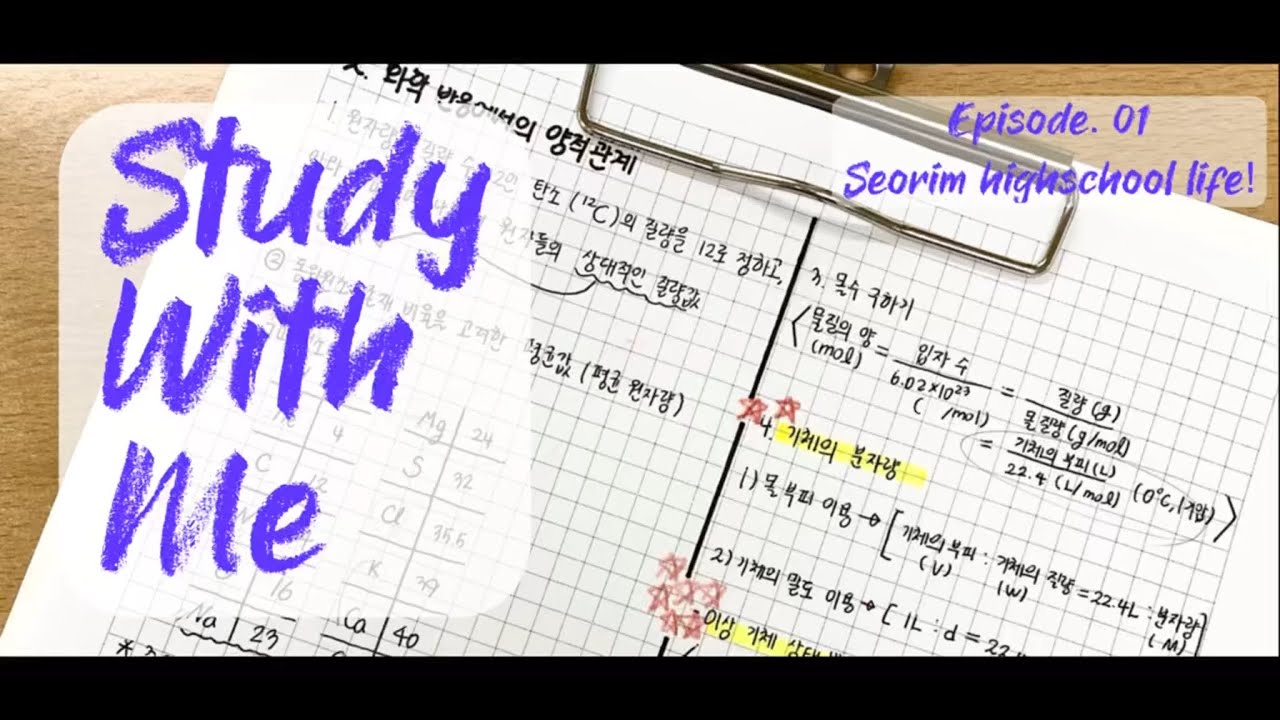 Study
With
Me
Episode. 01
Seorim highschool life!
2. 화학 반응에서의 양적관계
1. 원자량
탄소 (¹²C)의 질량을 12로 정하고,
원자들의 상대적인 질량값
② 동위원소 존재 비율을 고려한
평균값 (평균 원자량)
He | 4
C | 12
16
Na | 23
Mg | 24
S | 32
Cl | 35.5
K | 39
Ca | 40
3. 몰수 구하기
〈 물질의 양 (mol) = 입자 수 / 6.02×10²³ ( /mol) = 질량 (g) / 몰 질량 (g/mol)
= 기체의 부피 (L) / 22.4 (L/mol) (0°C, 1기압) 〉
4. 기체의 분자량
1) 몰 부피 이용 → [ 기체의 부피 (V) : 기체의 질량 (W) = 22.4L : 분자량 (M) ]
2) 기체의 밀도 이용 → [ 1L : d = 22.
이상 기체 상태